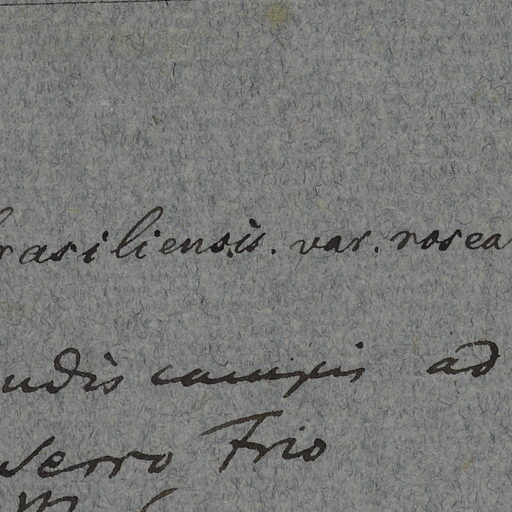 brasiliensis. var. rosea
udis campis ad
Serro Frio